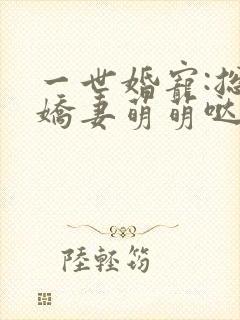 一世婚寵:總
嬌妻萌萌噠
陸輕筠